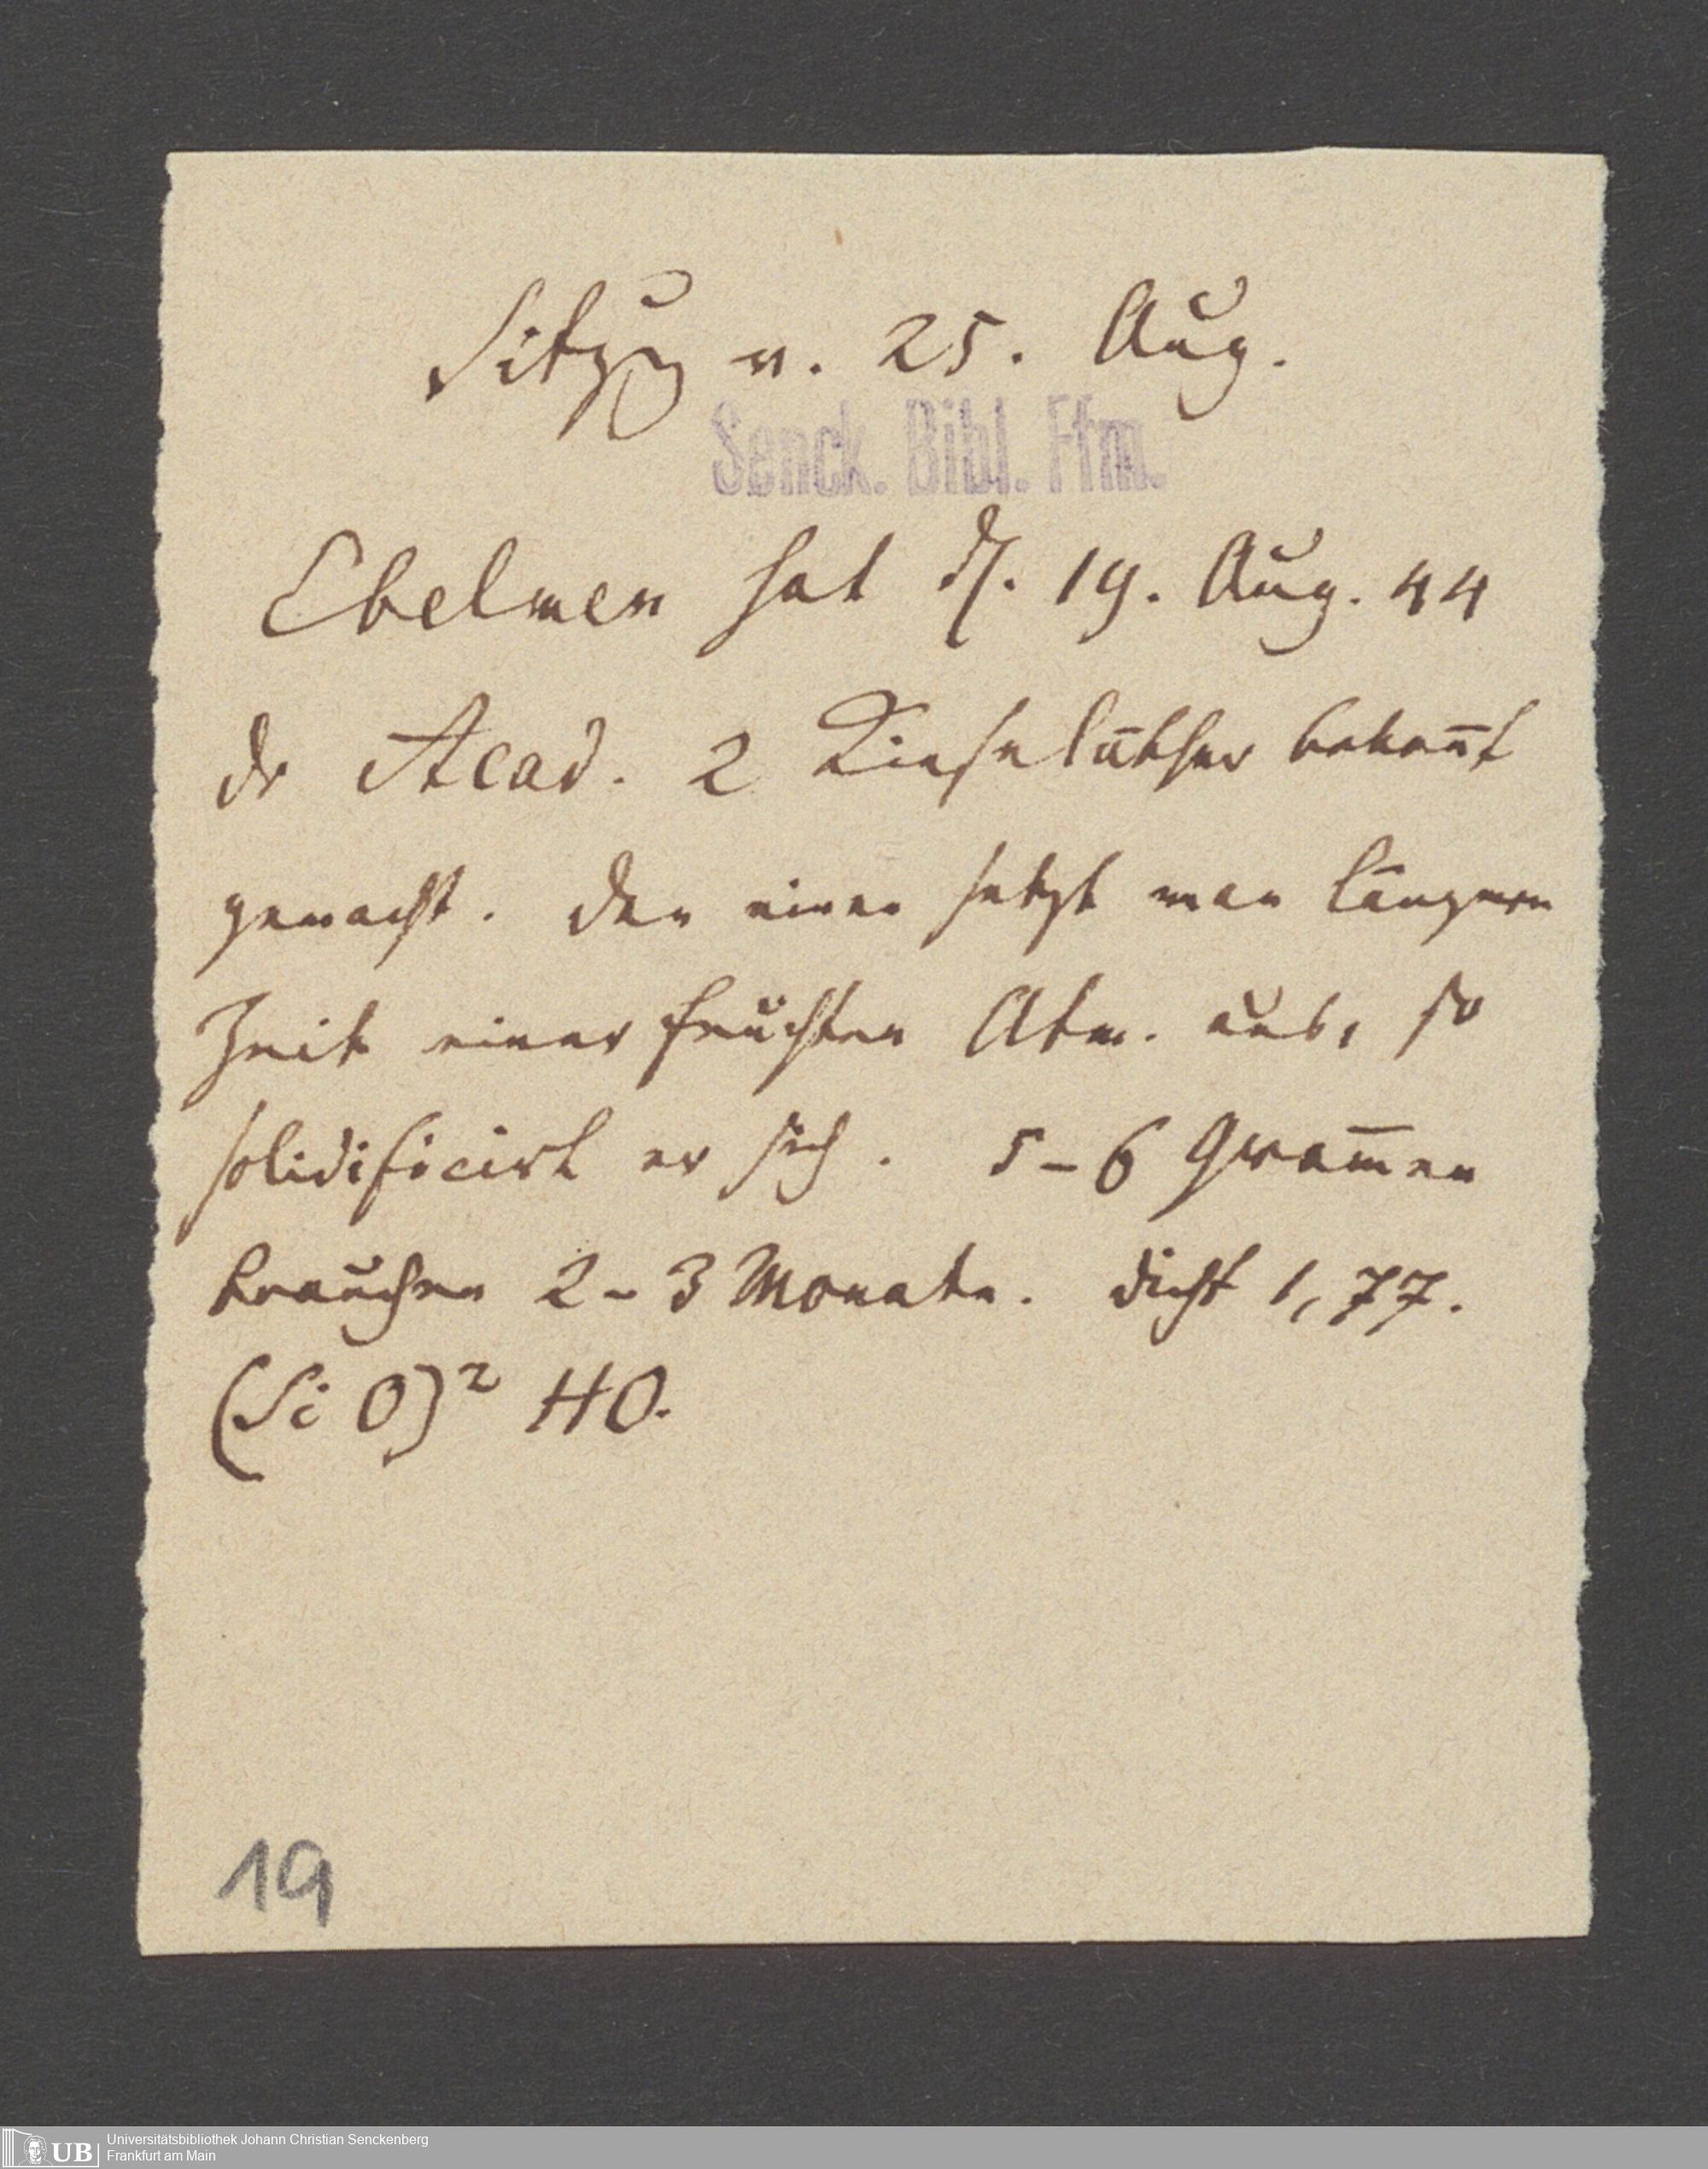 Sitzg v. 25. Aug.
Senck. Bibl. Ffm.
Ebelmen hat d. 19. Aug. 44
dr Acad. 2 Kieseläther bekan̄t
gemacht. Den einen setzt man längere
Zeit einer feuchten Atm. aus, so
solidificirt er sich. 5-6 Gram̄en
brauchen 2-3 Monate. Dicht 1,77.
(Si O)² HO.
19
UB
Universitätsbibliothek Johann Christian Senckenberg
Frankfurt am Main